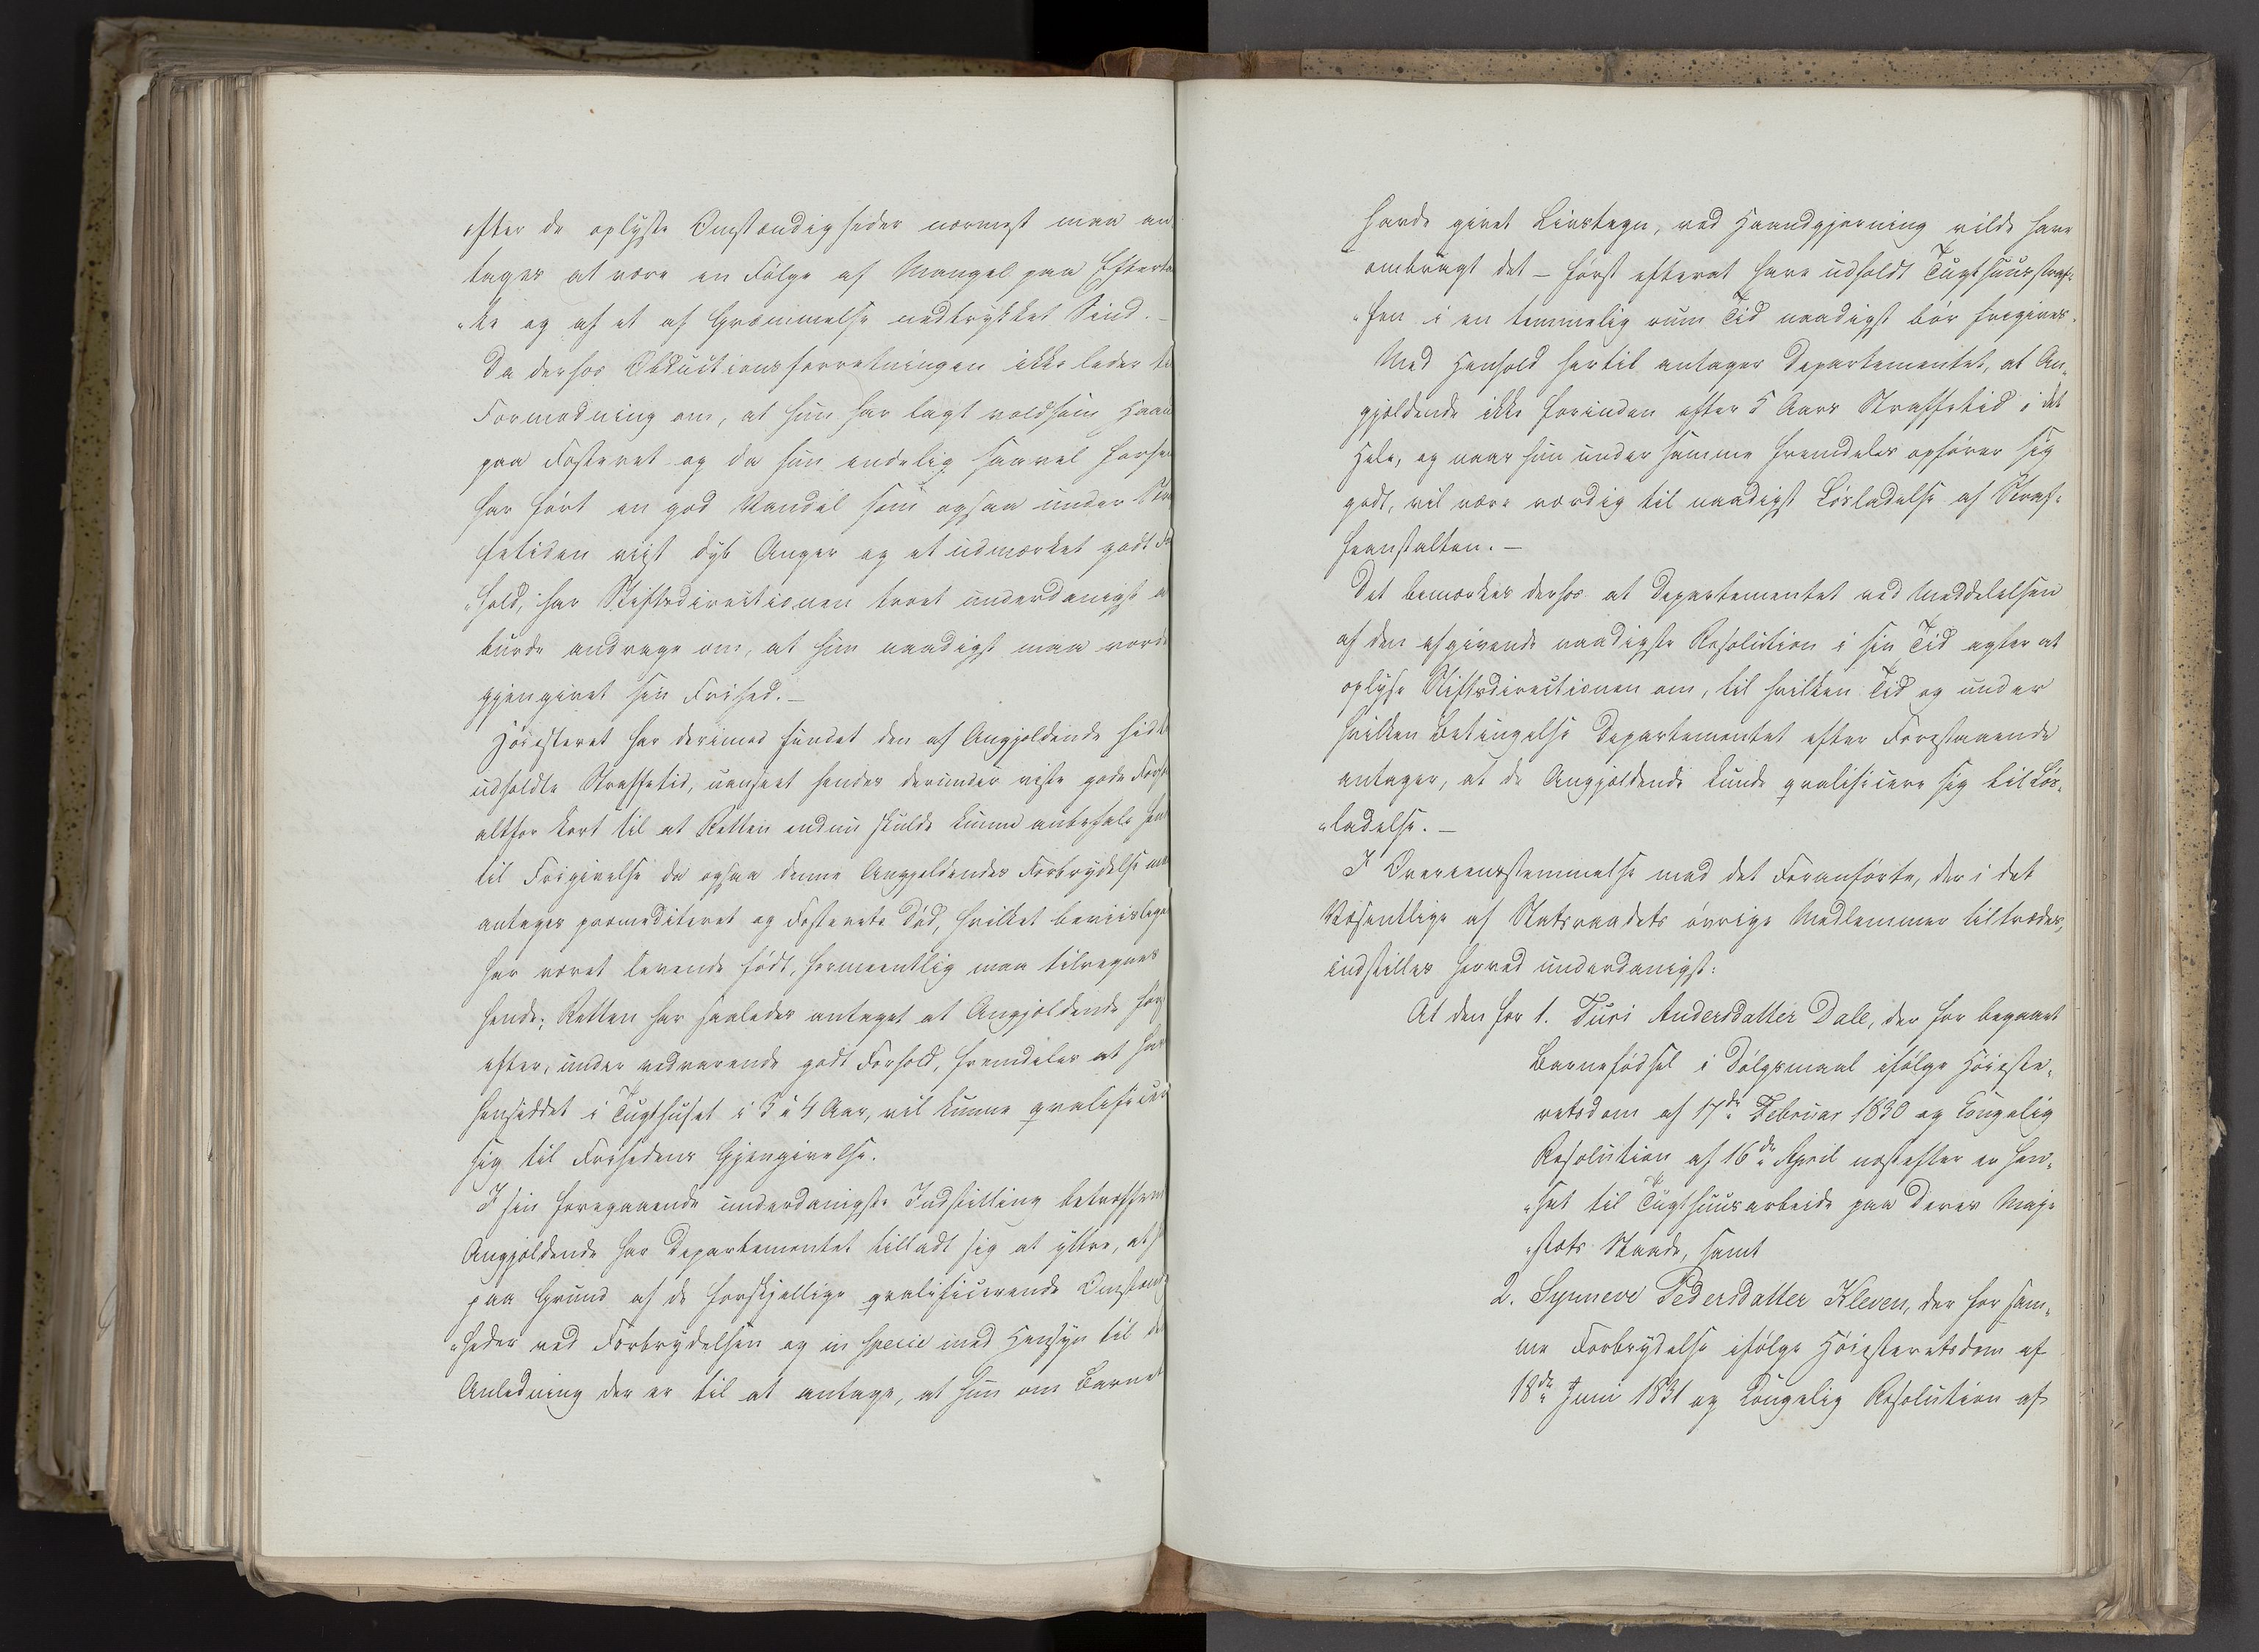 efter de oplyste Omstændigheder nærmest maa an
tages at være en Følge af Mangel paa Efterta
„ke og af et af Græmmelse nedtrykket Sind. –
Da derhos Obductionsforretningen ikke leder ti
Formodning om, at hun har lagt voldsom Haan
paa Fosteret og da hun endelig saavel forhen
har ført en god Vandel som ogsaa under Stra
fetiden viist dyb Anger og et udmærket godt Fo
„hold, har Stiftsdirectionen troet underdanigst a
burde andrage om, at hun naadigst maa vorde
gjengivet sin Frihed. –
Høiesteret har derimod fundet den af Angjældende hidti
udholdte Straffetid, uanseet hendes derunder viste gode Forh
altfor kort til at Retten endnu skulde kunne anbefale hen
til Frigivelse da ogsaa denne Angjeldendes Forbrydelse maa
antages præmediteret og Fosterets Død, hvilket beviisligen
har været levende født, formeentlig maa tilregnes
hende; Retten har saaledes antaget at Angjældende før
efter, under vedvarende godt Forhold, fremdeles at have
hensiddet i Tugthuset i 3 à 4 Aar, vil kunne qvalificere
sig til Frihedens Gjengivelse.
I sin foregaaende underdanigste Indstilling betræffende
Angjældende har Departementet tilladt sig at yttre, at h
paa Grund af de forskjellige qvalificerende Omstændig
„heder ved Forbrydelsen og in specie med Hensyn til de
Anledning der er til at antage, at hun om Barnet
havde givet Livstegn, ved Haandgjerning vilde have
ombragt det – først efterat have udholdt Tugthuusstraf„
„fen i en temmelig rum Tid naadigst bør frigives.
Med Henhold hertil antager Departementet, at An„
gjældende ikke forinden efter 5 Aars Straffetid i det
Hele, og naar hun under samme fremdeles opfører sig
godt, vil være værdig til naadigst Løsladelse af Straf„
feanstalten. –
Det bemærkes derhos at Departementet ved Meddelelsen
af den afgivende naadigste Resolution i sin Tid agter at
oplyse Stiftsdirectionen om, til hvilken Tid og under
hvilken Betingelse Departementet efter Forestaaende
antager, at de Angjældende kunde qvalificere sig til Løs„
„ladelse. –
I Overeensstemmelse med det Foranførte, der i det
Væsentlige af Statsraadets øvrige Medlemmer tiltrædes,
indstilles herved underdanigst:
At den for 1. Turi Andersdatter Dale, der for begaaet
Barnefødsel i Dølgsmaal ifølge Høieste„
retsdom af 17de Februar 1830 og Kongelig
Resolution af 16de April næstefter er hen„
„sat til Tugthuusarbeide paa Deres Maje
„stæts Naade, samt
2. Synneve Pedersdatter Kleven, der for sam„
me Forbrydelse ifølge Høiesteretsdom af
18de Juni 1831 og Kongelig Resolution af